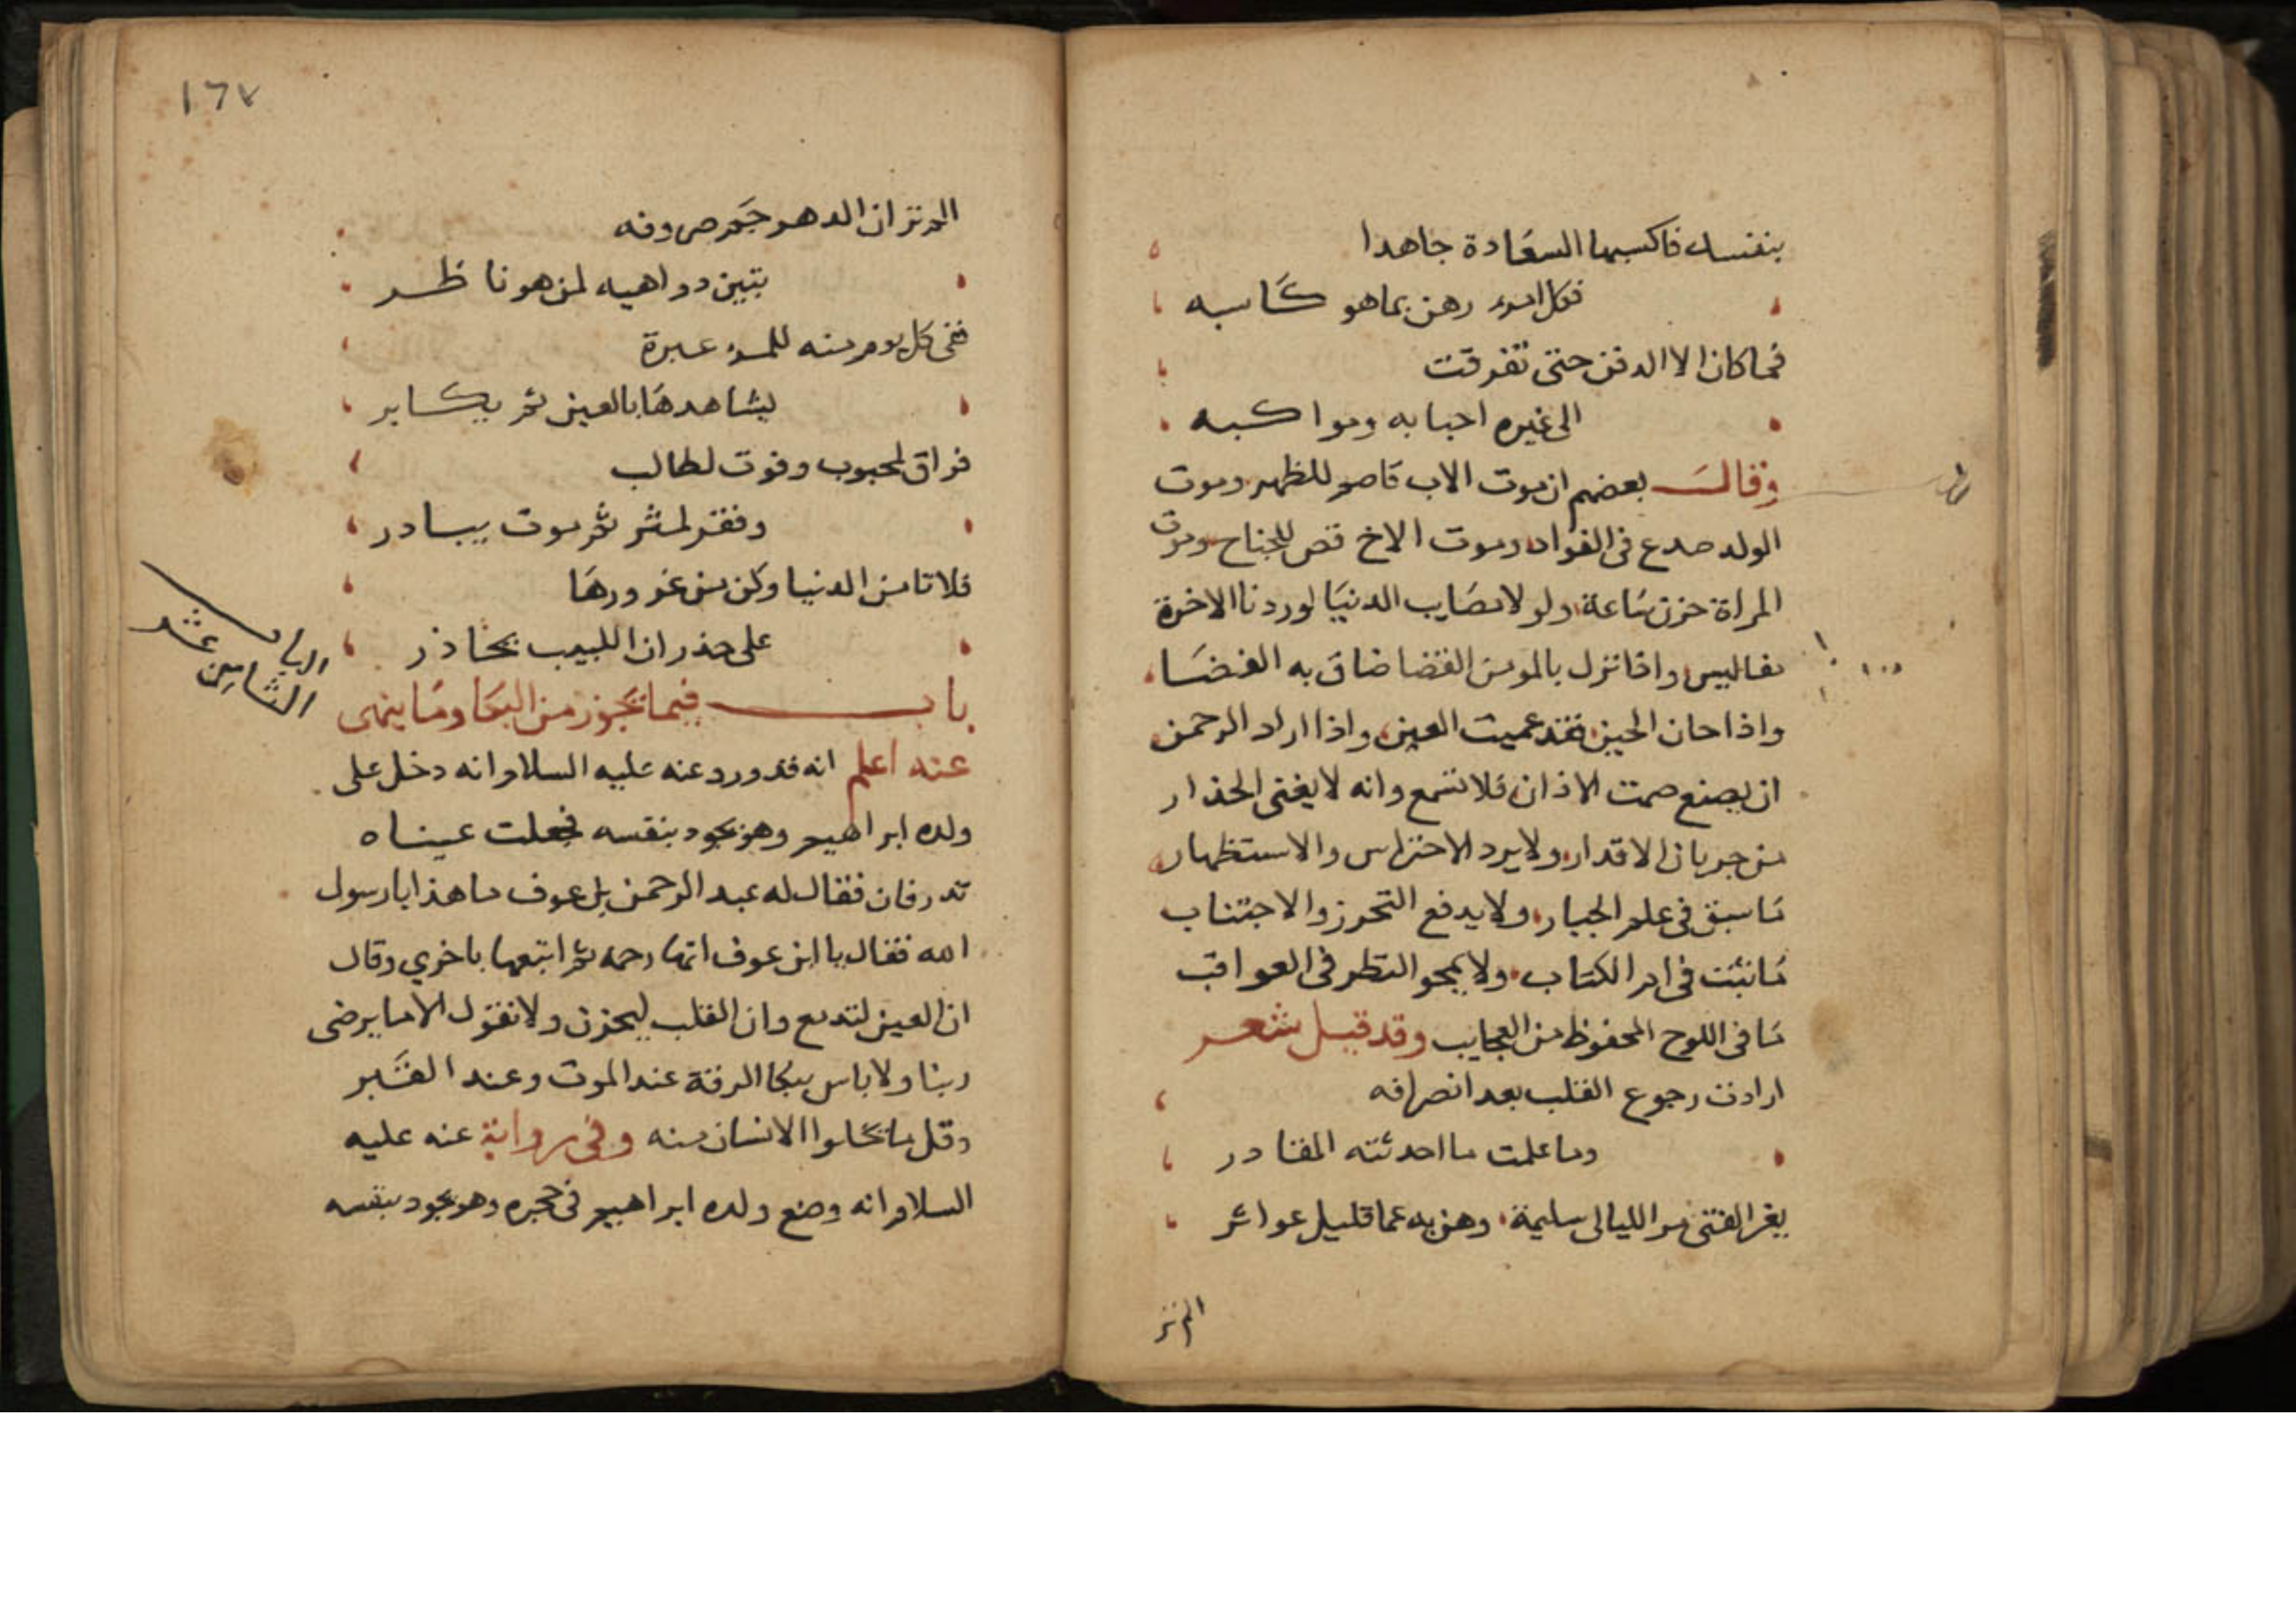 بنفسك فاكسبها السعادة جاهدا
فكل امرء رهن بما هو كاسبه
فما كان الا الدفن حتى تفرقت
الى غيره احبابه ومواكبه
وقال بعضهم ان موت الاب قاصم للظهر وموت
الولد صدع فى الفواد وموت الاخ قص للجناح وموت
المراة حزن ساعة ولولا مصايب الدنيا لوردنا الاخرة
مفاليس واذا نزل بالمومن القضا ضاق به الفضا
واذا حان الحين فقد عميت العين واذا اراد الرحمن
ان يصنع صمت الاذان فلا تسمع وانه لا يغنى الحذار
من جريان الاقدار ولا يرد الاحتراس والاستظهار
ما سبق فى علم الجبار ولا يدفع التحرز والاجتناب
ما نبئت فى ام الكتاب ولا يمحو النظر فى العواقب
ما فى اللوح المحفوظ من العجايب وقد قيل شعر
ارادت رجوع القلب بعد انصرافه
وما علمت ما احدثته المقادر
يغر الفتى مر الليالى سليمة وهن به عما قليل عواثر
الم تر
١٦٧
الم تر ان الدهر جم صروفه
تبين دواهيه لمن هو ناظر
ففى كل يوم منه للمرء عبرة
يشاهدها بالعين ثم يكابر
فراق لمحبوب وفوت لطالب
وفقر لمثر ثم موت يبادر
فلا تامن الدنيا وكن من غرورها
على حذر ان اللبيب يحاذر
الباب
الثامن عشر
باب فيما يجوز من البكا وما ينهى
عنه اعلم انه قد ورد عنه عليه السلام انه دخل على
ولده ابراهيم وهو يجود بنفسه فجعلت عيناه
تدرفان فقال له عبد الرحمن بن عوف ما هذا يا رسول
الله فقال يا ابن عوف انها رحمة ثم اتبعها باخري وقال
ان العين لتدمع وان القلب ليحزن ولا نقول الا ما يرضى
ربنا ولا باس ببكا الرقة عند الموت وعند القبر
وقل ما يخلوا الانسان منه وفى رواية عنه عليه
السلام انه وضع ولده ابراهيم فى حجره وهو يجود بنفسه